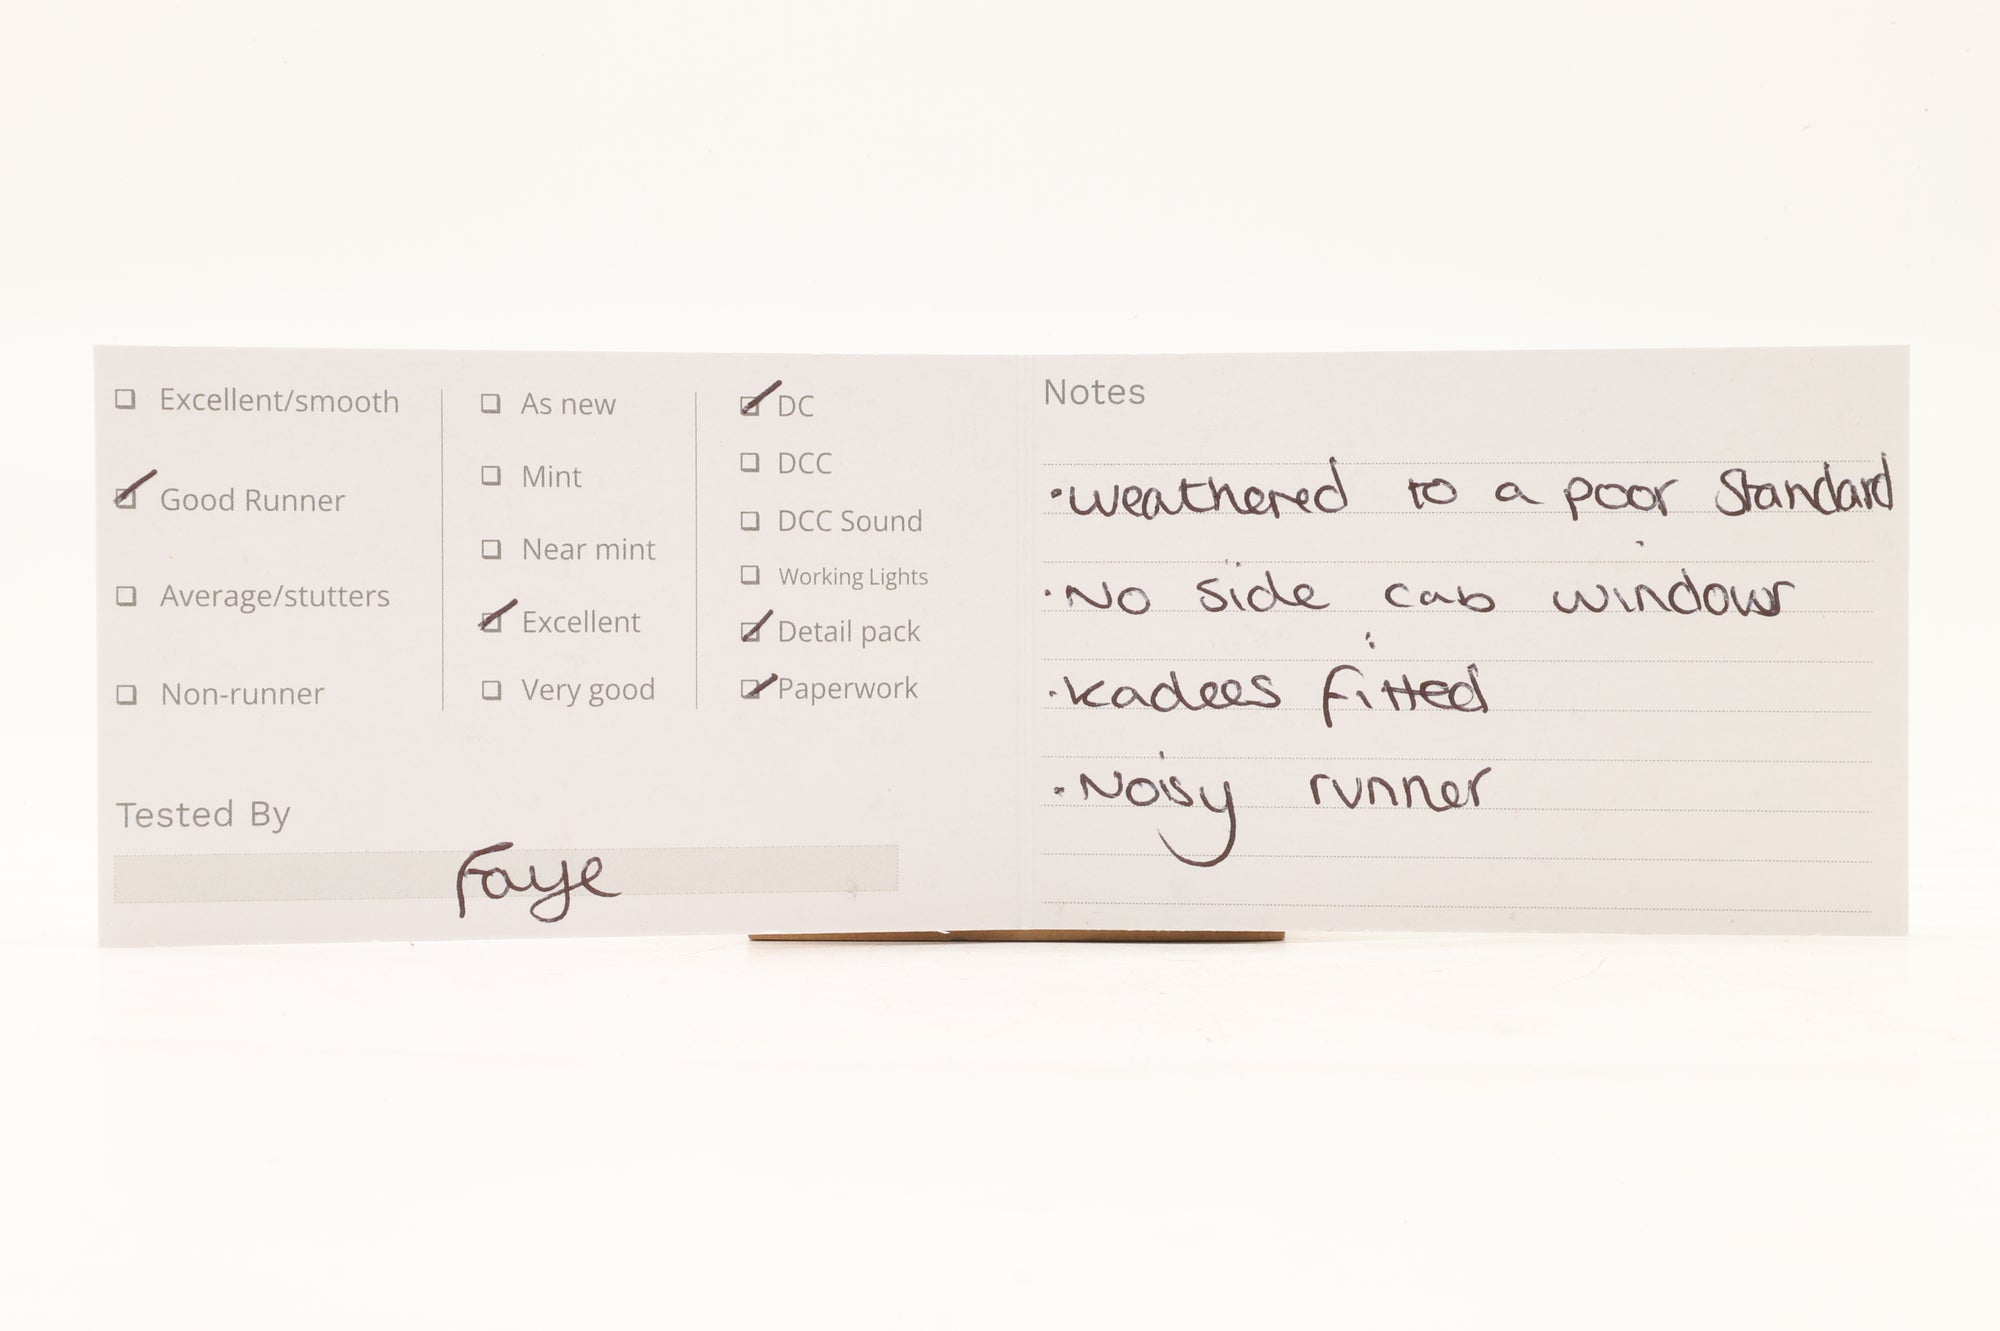 Excellent/smooth
Good Runner
Average/stutters
Non-runner
As new
Mint
Near mint
Excellent
Very good
DC
DCC
DCC Sound
Working Lights
Detail pack
Paperwork
Tested By
Faye
Notes
·Weathered to a poor Standard
·No side cab windows
·Kadees fitted
·Noisy runner